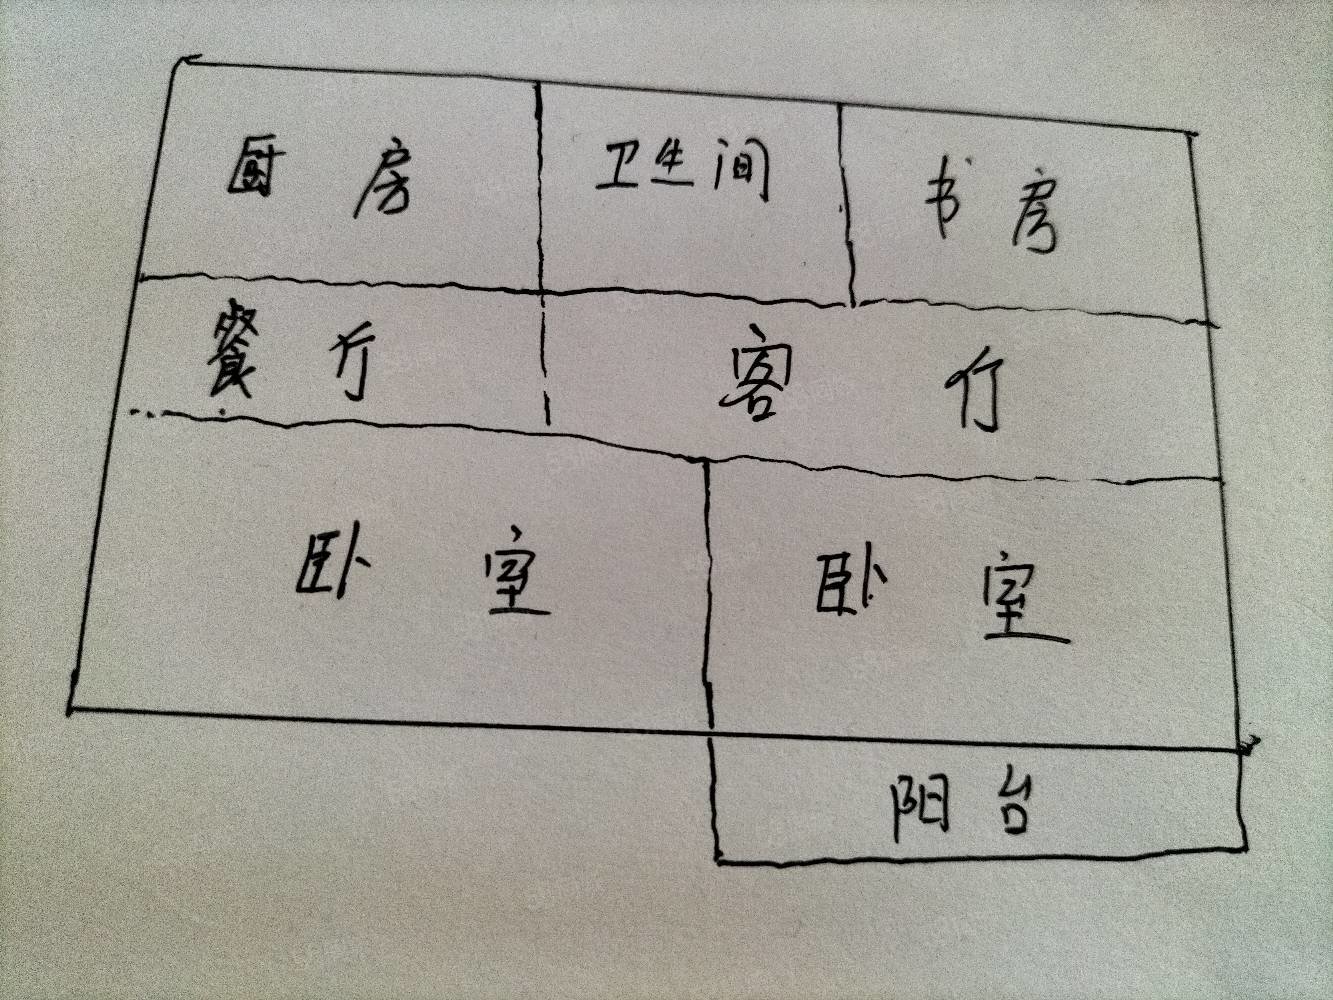 厨房 卫生间 书房
餐厅 客厅
卧室 卧室
阳台